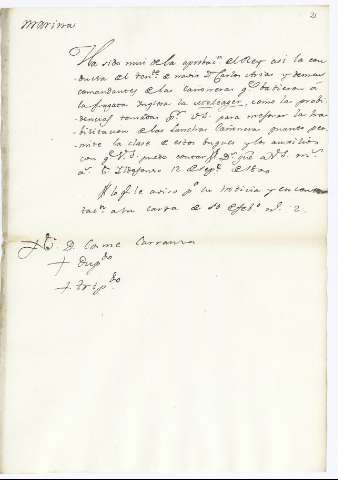 2
Marina
Ha sido mui de la aprobaon. el Rey asi la con
ducta del tente. de navio Dn. Carlos Arias y demas
comandantes de las Cañoneras qe. batieron á
la fragata inglesa la como las probi
dencias tomadas pr. V.S. para mejorar la ha
bilitacion de las lanchas Cañoneras quanto per
mite la clase de estos buques y los auxilios
con qe. V.S. puede contar. Dios gue. a V.S. ms.
as. Sn. Ildefonso 12 de Sepre. de
lo qe. le aviso pa. su noticia y en contes
tacon. a su carta de de no. 2.
Sor. D. Cosme Carranza
+ Dupdo
+ Tripdo.